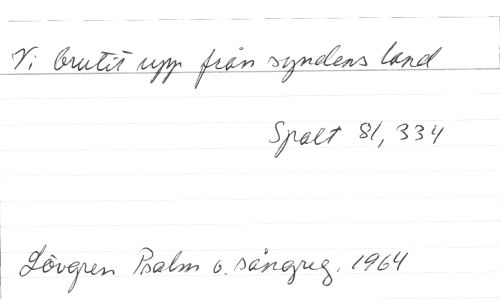 Vi brutit upp från syndens land
Spalt 81, 334
Lövgren Psalm o. sångreg. 1964